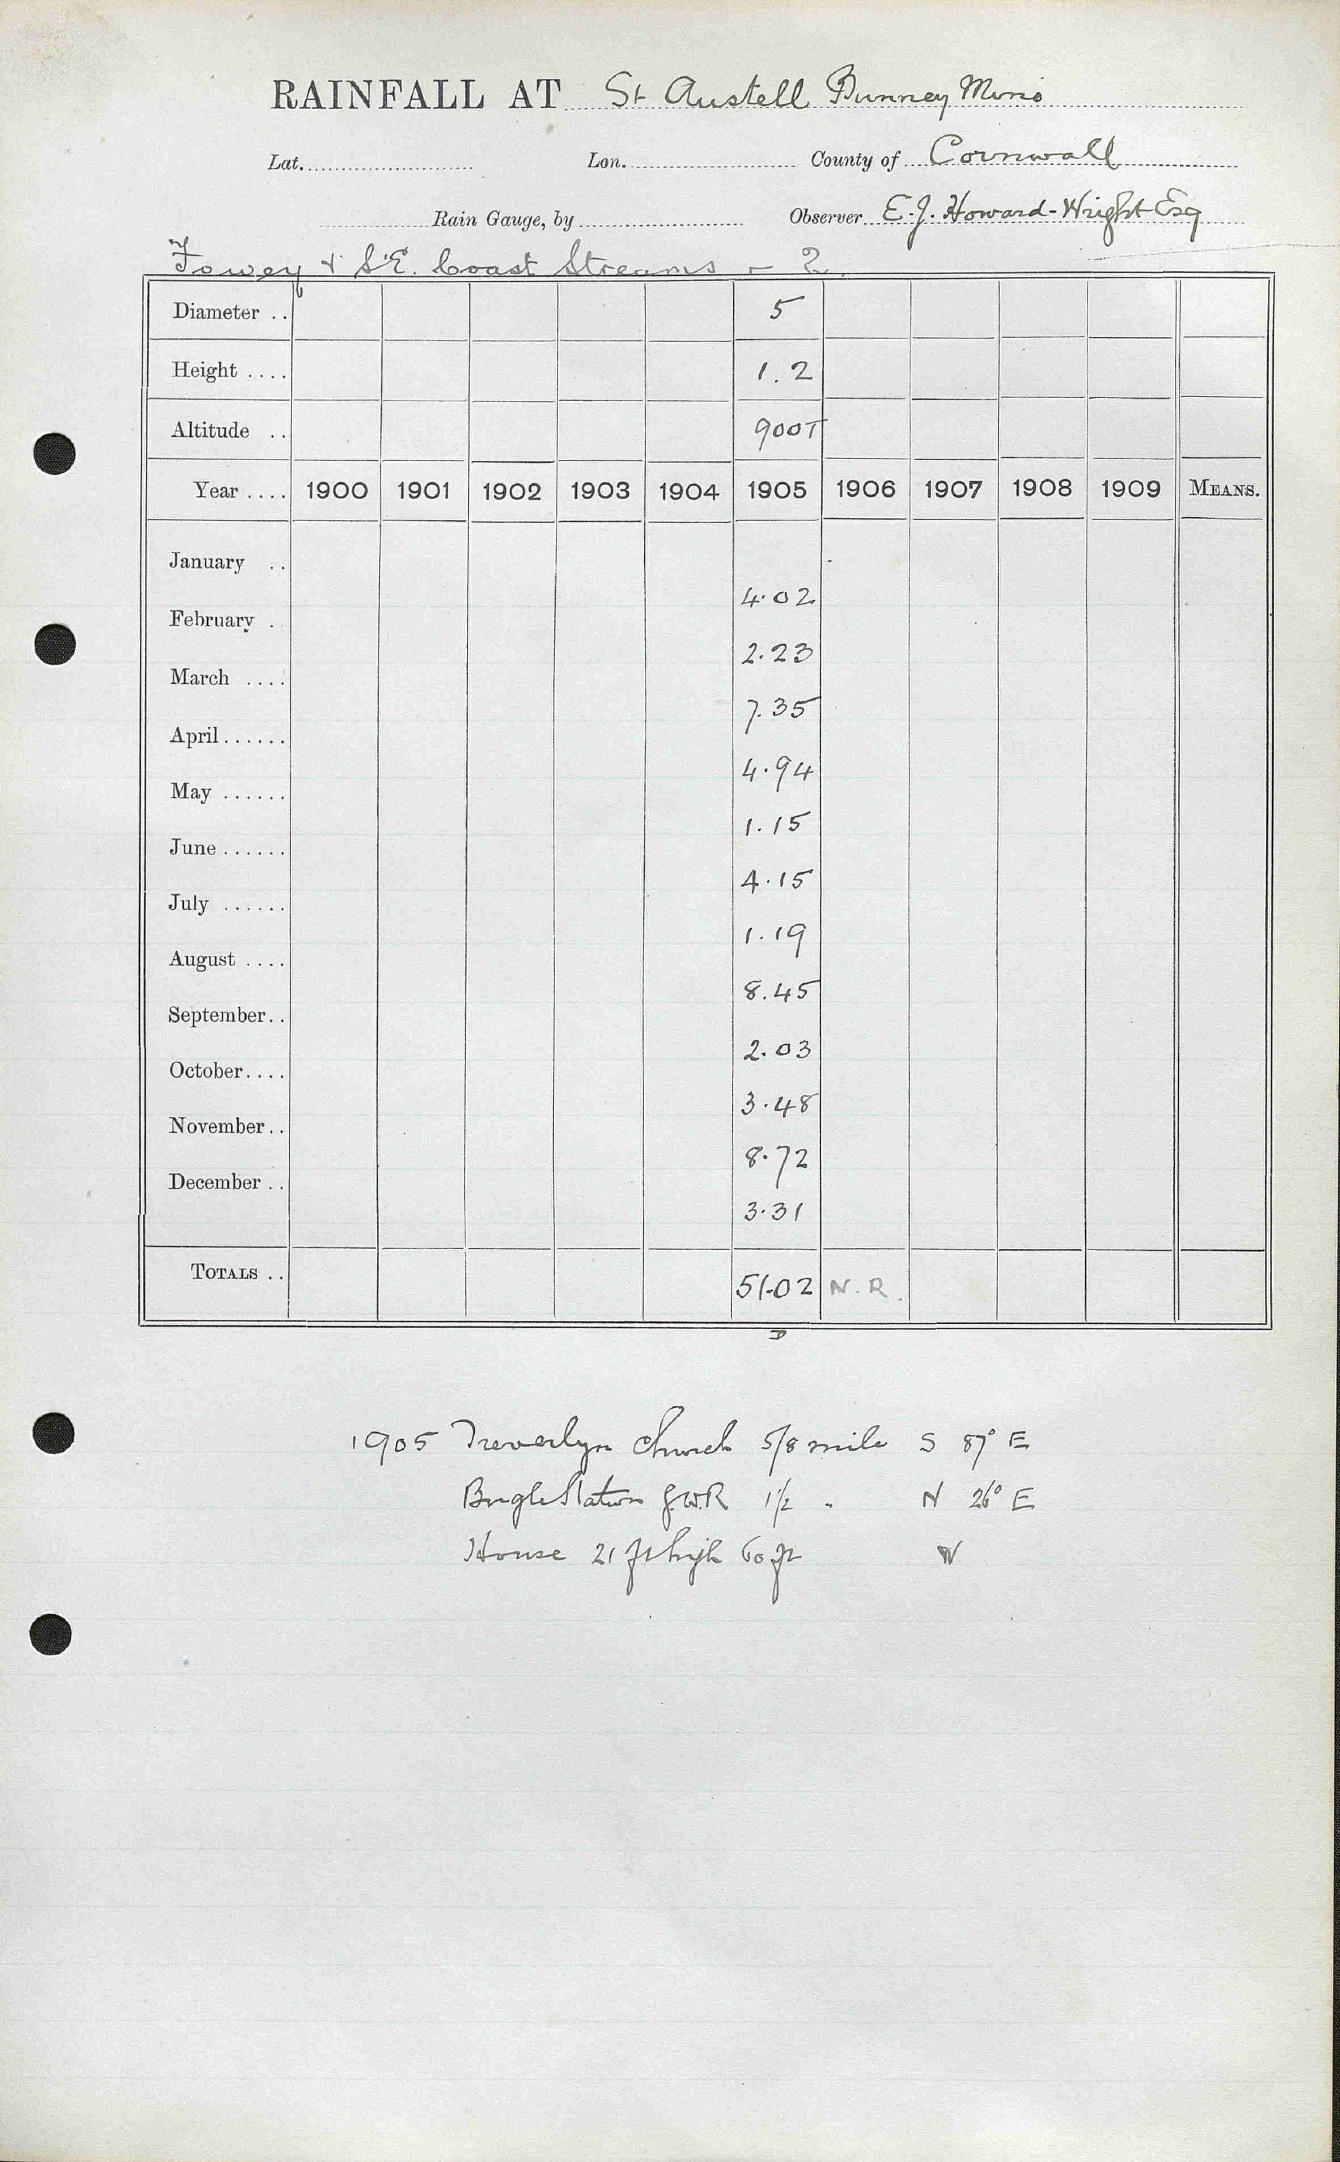 RAINFALL AT St Austell Bunney Mine
Lat. Lon. County of Cornwall
Rain Gauge, by Observer E. J. Howard-Wright Esq
Fowey & S.E. Coast Streams - 2.
Diameter .. 5
Height .... 1.2
Altitude .. 900T
Year .... 1900 1901 1902 1903 1904 1905 1906 1907 1908 1909 MEANS.
January .. 4.02
February . 2.23
March .... 7.35
April ...... 4.94
May ...... 1.15
June ...... 4.15
July ...... 1.19
August .... 8.45
September .. 2.03
October .... 3.48
November .. 8.72
December .. 3.31
TOTALS .. 51.02 N.R.
D
1905 Treverlyn Church 5/8 mile S 87° E
Bugle Station G.W.R 1 1/2 " N 26° E
House 21 ft high 60 ft W